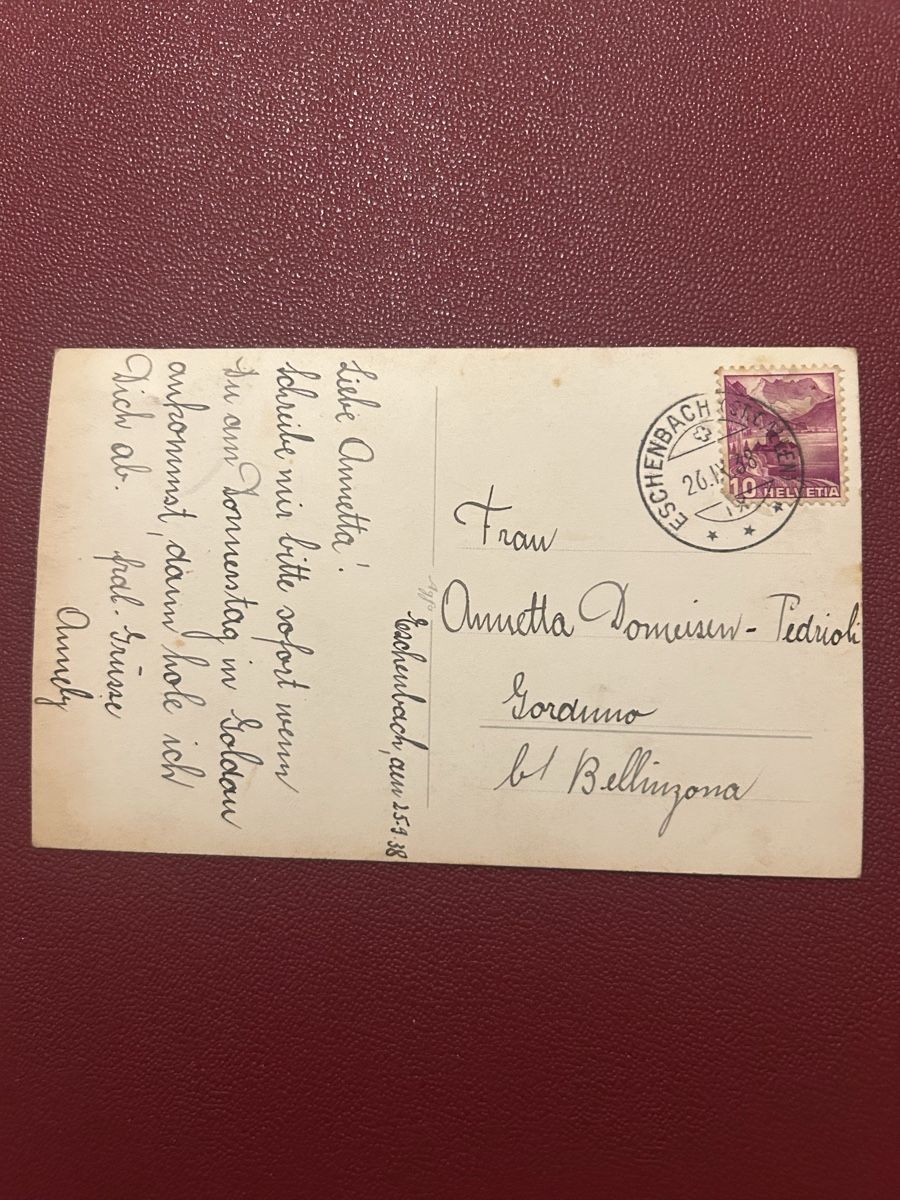 Eschenbach, den 25.9.38
Liebe Annetta!
Schreibe mir bitte sofort wenn
Du am Donnerstag in Goldau
ankommst, dann hole ich
Dich ab. frdl. Grüsse
Annely
ESCHENBACH (ST. GALLEN)
26.IX.38
10 HELVETIA
Frau
Annetta Domeisen-Pedrioli
Gorduno
b/ Bellinzona